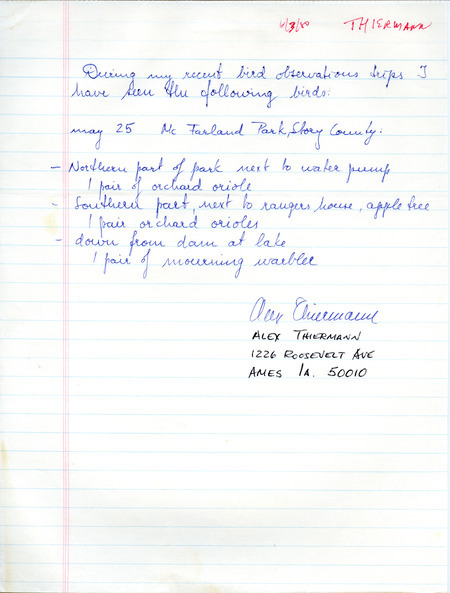 6/3/80 THIERMANN
During my recent bird observations trips I
have seen the following birds:
may 25 Mc Farland Park, Story County.
- Northern part of park next to water pump
1 pair of orchard oriole
- Southern part, next to rangers house, appletree
1 pair orchard orioles
- down from dam at lake
1 pair of mourning warbler
Alex Thiermann
ALEX THIERMANN
1226 ROOSEVELT AVE
AMES IA. 50010